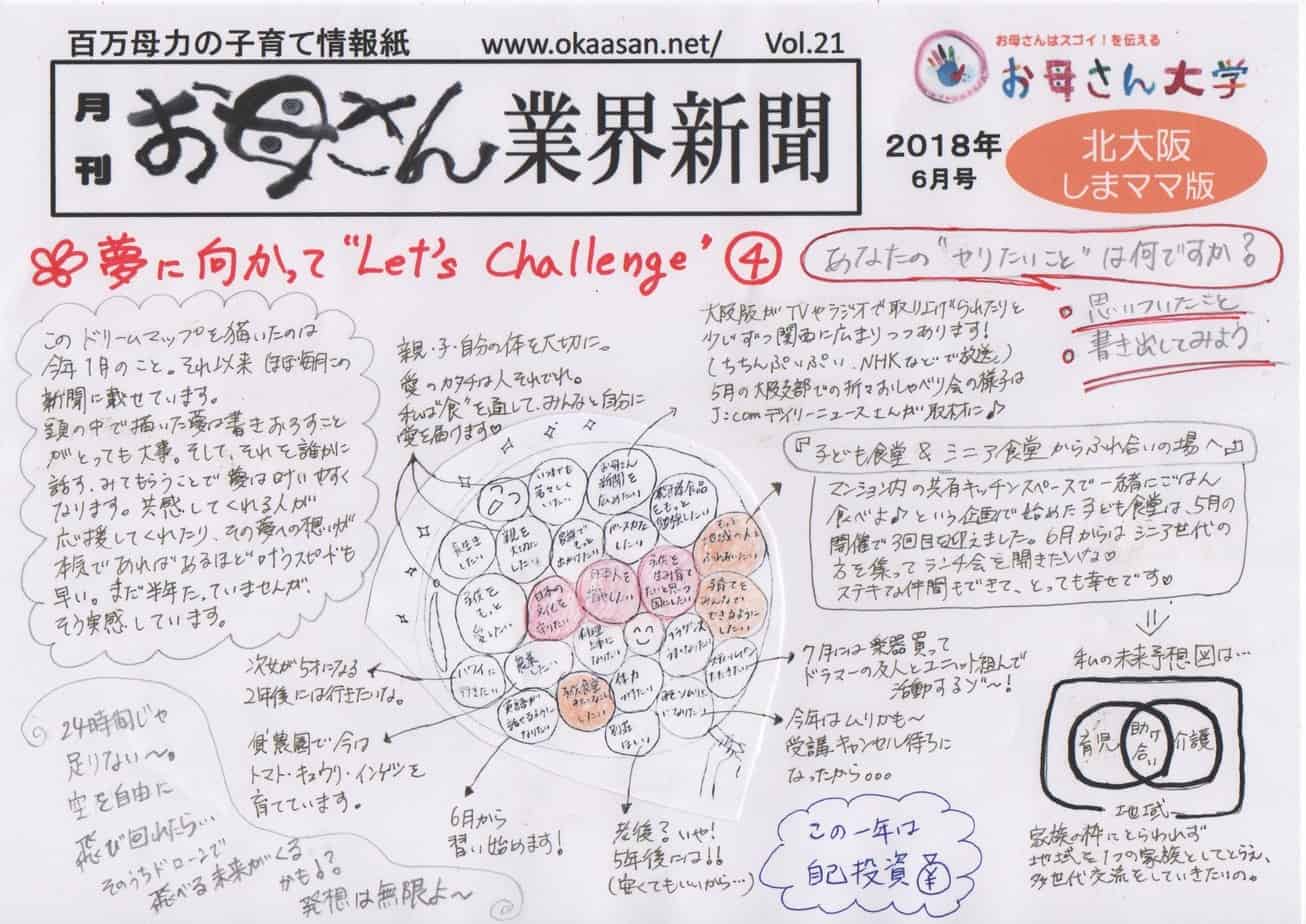 百万母力の子育て情報紙 www.okaasan.net/ Vol.21
月刊
お母さん業界新聞
お母さんはスゴイ！を伝える
お母さん大学
2018年
6月号
北大阪
しまママ版
夢に向かって "Let's Challenge" ④
あなたの"やりたいこと"は何ですか？
思いついたこと
書き出してみよう
このドリームマップを描いたのは
今年1月のこと。それ以来 ほぼ毎月この
新聞に載せています。
頭の中で描いた夢は書きおろすこと
がとっても大事。そして、それを誰かに
話す、みてもらうことで夢は叶いやすく
なります。共感してくれる人が
応援してくれたり、その夢への想いが
本気であればあるほど叶うスピードも
早い。まだ半年たっていませんが、
そう実感しています。
親・子・自分の体を大切に。
愛のカタチは人それぞれ。
私は"食"を通して、みんなと自分に
愛を届けます♡
大阪版がTVやラジオで取り上げられたりと
少しずつ関西に広まりつつあります！
（ちちんぷいぷい、NHKなどで放送。）
5月の大阪支部での折々おしゃべり会の様子は
J:comデイリーニュースさんが取材に♪
『子ども食堂 & シニア食堂 からふれ合いの場へ』
マンション内の共有キッチンスペースで一緒にごはん
食べよ♪という企画で始めた子ども食堂は、5月の
開催で3回目を迎えました。6月からはシニア世代の
方を集ってランチ会を開きたいな♡
ステキな仲間もできて、とっても幸せです♡
いつまでも若々しくいたい
お母さん新聞を広めたい
長生きしたい
親を大切にしたい
家族でもっとおでかけしたい
もっと地域の人とふれあいたい
子供をもっと愛したい
日本の文化を守りたい
日本人を増やしたい
子供を生み育てたいと思う国にしたい
子育てをみんなでできるようにしたい
料理上手になりたい
ハワイに行きたい
農業したい
体力つけたい
英語が話せるようになりたい
別荘ほしい
次女が5才になる
2年後には行きたいな。
貸農園で今は
トマト・キュウリ・インゲンを
育てています。
6月から
習い始めます！
老後？いや！
5年後には!!
（安くてもいいから…）
7月には楽器買って
ドラマーの友人とユニット組んで
活動するゾ～！
今年はムリかも～
受講キャンセル待ちに
なったから。。。
この一年は
自己投資 ¥
私の未来予想図は…
育児
助け合い
介護
地域
家族の枠にとらわれず
地域を1つの家族としてとらえ、
多世代交流をしていきたいの。
24時間じゃ
足りない～。
空を自由に
飛び回れたら…
そのうちドローンで
飛べる未来がくる
かも♪？
発想は無限よ～